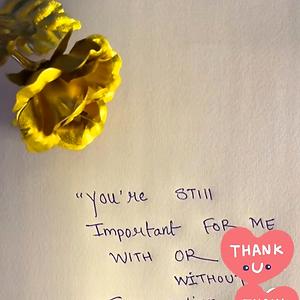 "You're STIll
Important FOR ME
WITH OR
WITHOUT
THANK
U